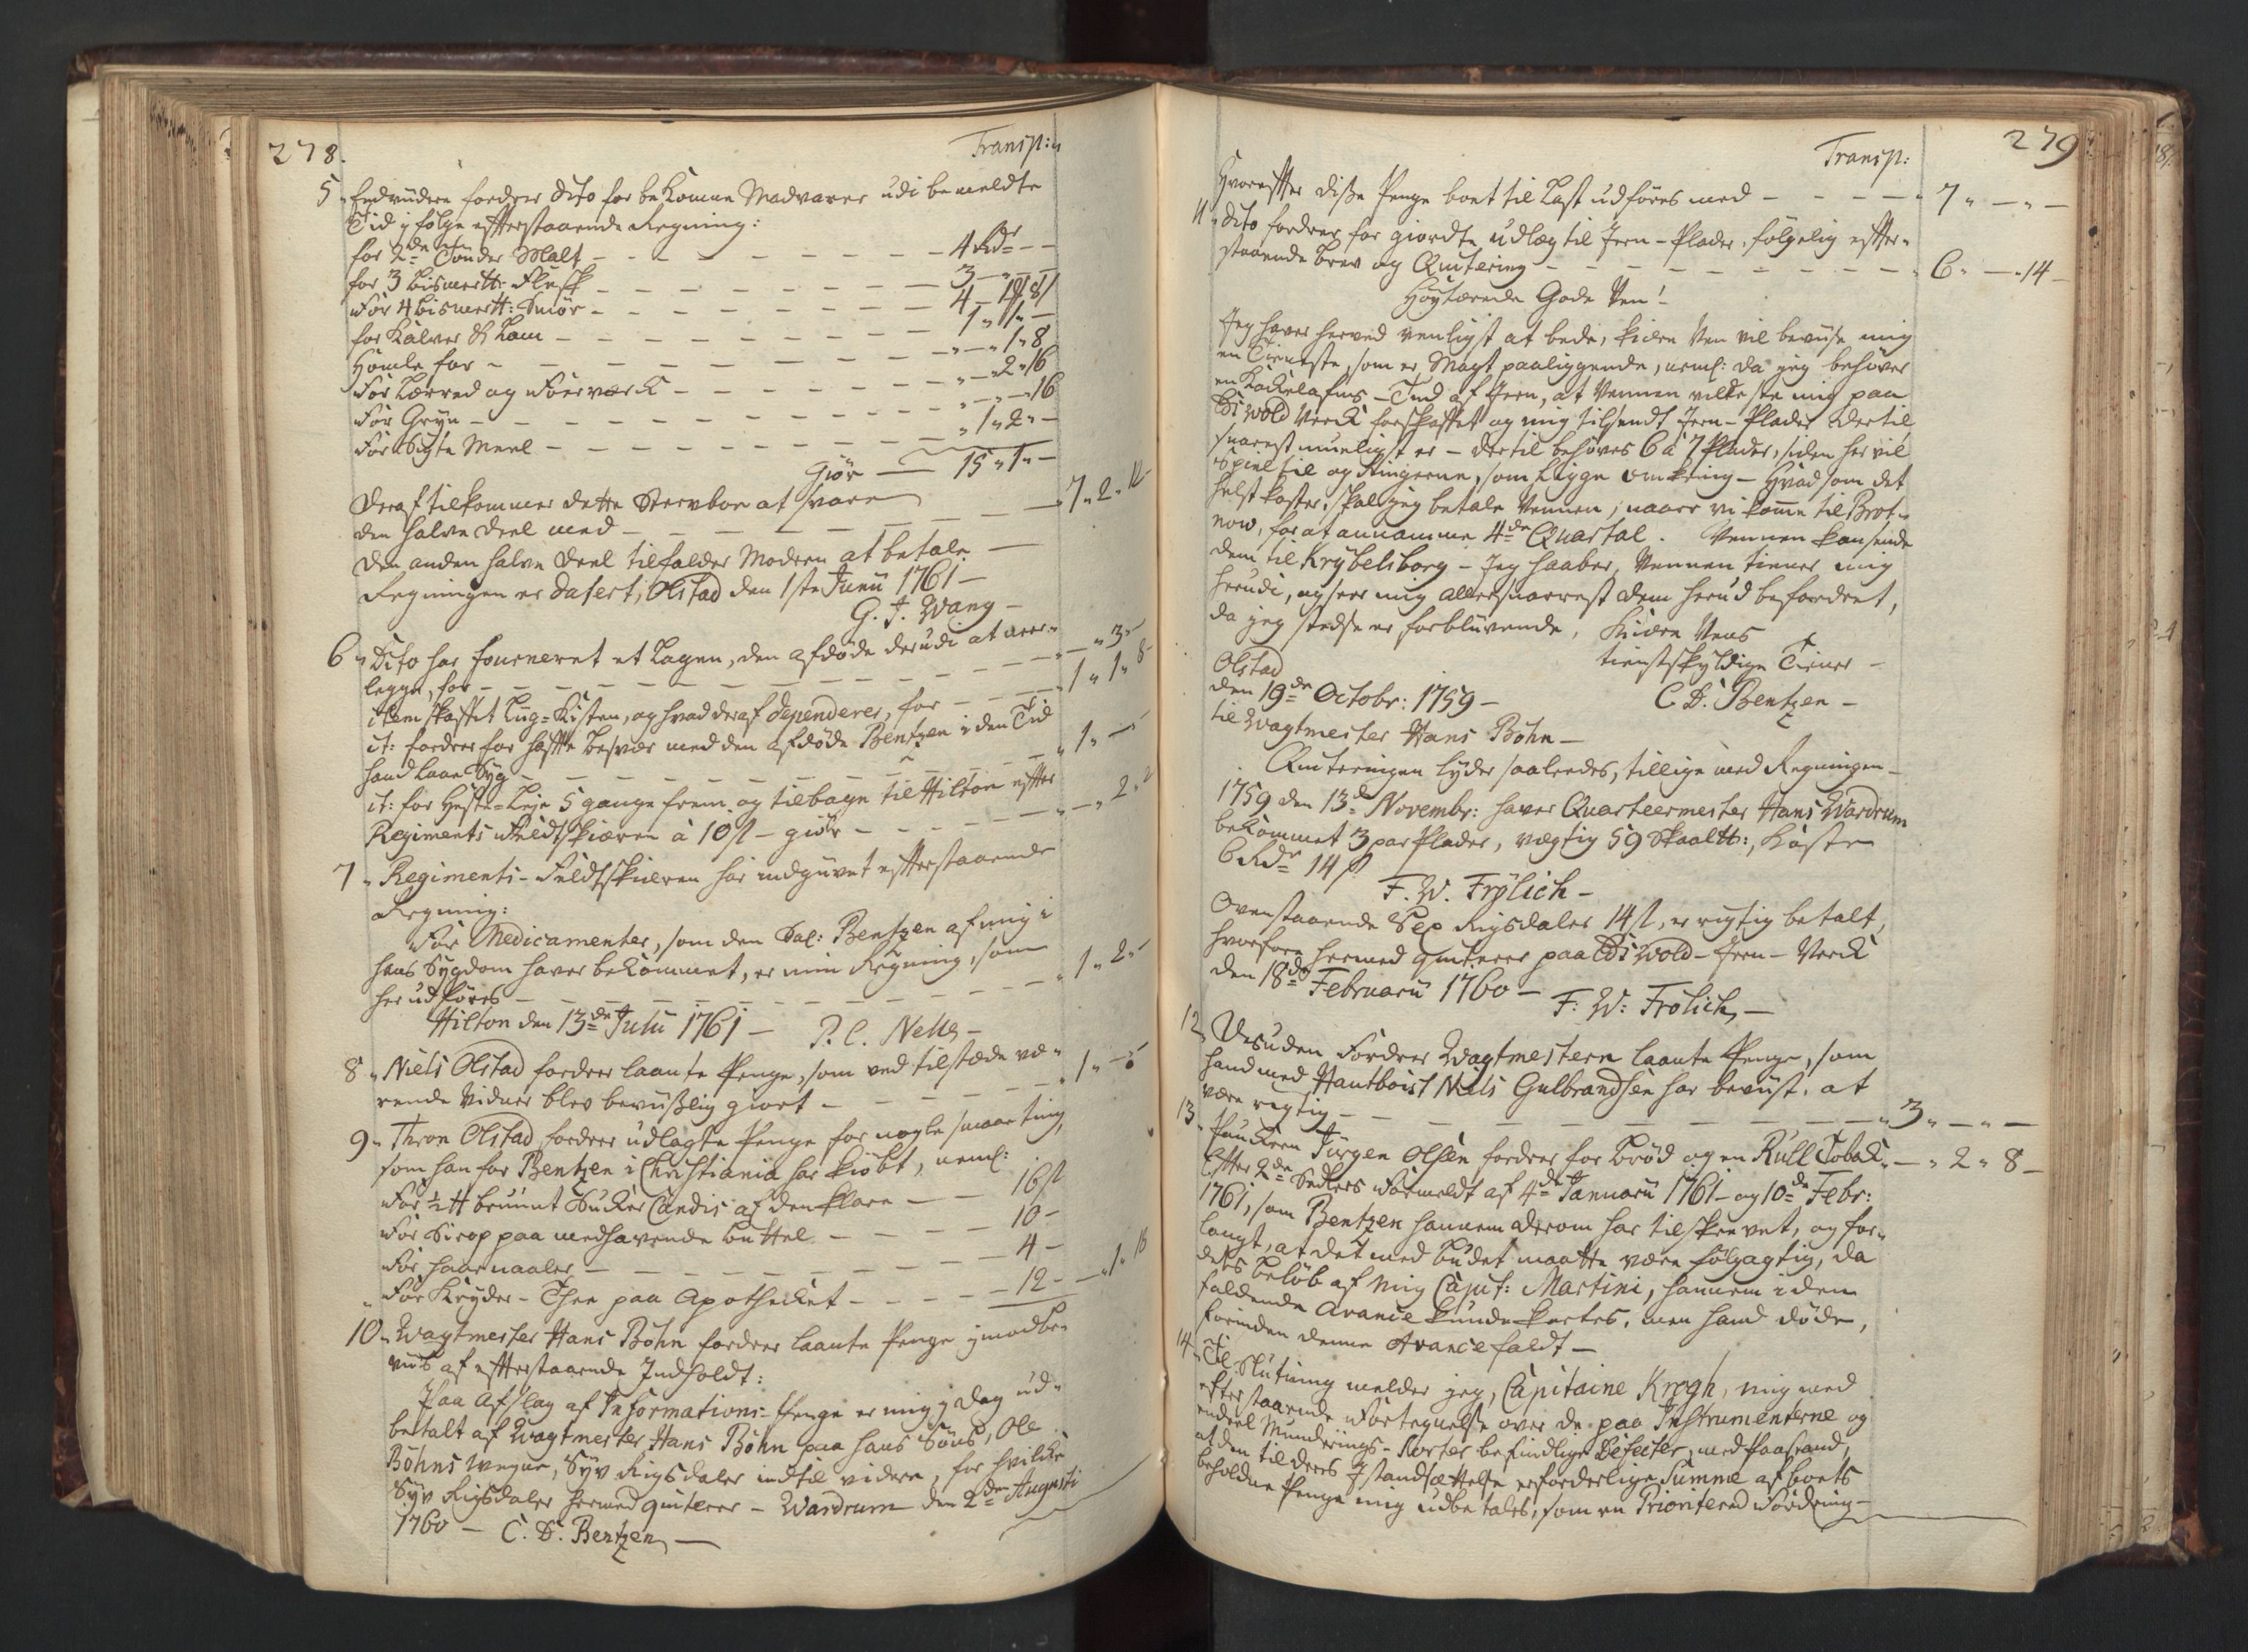 278.
Transp:
5. Endvidere fordrer dito for bekomne Madvarer udi bemeldte
Tid i følge efterstaaende Regning:
for 2de Tønder Malt - - - - - - 4 Rdr - -
for 3 Bismertt: Flesk - - - - - - 3 - - -
For 4 bismertt: Smør - - - - - - 4 -
for Kalver & Lam - - - - - - 1 " 1 " -
Homle for - - - - - - " - " 1 " 8
For Lærred og - - - - " - " 2 " 16
For Gryn - - - - - - " - " - 16
For Sigte Meel - - - - - - " 1 " 2 " -
Giör — 15 " 1 " -
Deraf tilkommer dette Sterwboe at svare
den halve Deel med - - - - - - 7 " 2 " 12
Den anden halve Deel tilfalder Modren at betale —
Regningen er datert, Olstad den 1ste Junii 1761 -
G. J. Wang -
6 " Dito har fourneret et Lagen, den afdøde derudi at ned-
legge, for - - - - - - " - " 3 -
item skaffet Liig-Kisten, og hvad deraf dependerer, for - - " 1 " 1 " 8
it: fordrer for hafte besvær med den afdøde Bentzen i den Tid
hand laae Syg - - - - - - " 1 " - -
it: for Heste-Leje 5 gange frem og tilbage til Hilton efter
Regiments Feldtskiæren à 10 s - giör - - - - " - " 2 " 2
7 " Regiments-Feldtskieren har indgivet efterstaaende
Regning:
For Medicamenter, som den Sal: Bentzen af mig i
hans Sygdom haver bekommet, er min Regning, som
her udføres - - - - - - " 1 " 2 " -
Hilton den 13de Julii 1761 - P. C. Nelle -
8 " Niels Olstad fordrer laante Penge, som ved tilstæde væ-
rende Vidner blev beviislig giort - - - - " 1 " - -
9 " Thron Olstad fordrer udlagte Penge for nogle smaae ting,
som han for Bentzen i Christiania har kiöbt, neml:
For ½ tt bruunt Sukker Candis af den klare - - 16 s
For Sirop paa medhavende Buttel - - - - 10 -
For Haarnaaler - - - - - - 4 -
For Kryder-Thee paa Apothecket - - - - 12 - - " 1 " 18
10 " Wagtmester Hans Böhn fordrer laante Penge imod be-
viis af efterstaaende Indholdt:
Paa Afslag af Informations-Penge er mig i Dag ud-
betalt af Wagtmester Hans Böhn paa hans Söns, Ole
Böhns Wegne, Syv Rigsdaler indtil videre, for hvilke
Syv Rigsdaler hermed quiterer - Wardrum den 2den Augusti
1760 - C. D. Bentzen, —
279
Transp:
Hvorefter disse Penge boet til Last udføres med - - - - " 7 " - " -
11 " Dito fordrer for giordte udlæg til Jern-Plader, følgelig efter-
staaende Brev og Quitering - - - - - - " 6 " - " 14 -
Höytærede Gode Ven!
Jeg haver herved venligst at bede, kiære Ven vil beviise mig
en Tieneste, som er Magt paaliggende, neml: da jeg behøver
en Kackelofns-Ind af Jern, at Vennen vilde see mig paa
Eidswold Verck forskaffet og mig tilsendt Jern-Plader dertil
snarest mueligst er - dertil behøves 6 à 7 Plader, siden her vil
Spiel til og Ringerne, som ligge omkring - Hvad som det
helst koster, skal jeg betale Vennen, naar vi komme til Brot-
now, for at annamme 4de Quartal. Vennen kan sende
dem til Krybelsborg - Jeg haaber, Vennen tiener mig
herudi, og seer mig allersnarest dem herud befordret,
da jeg stedse er forblivende, Kiære Vens
tienstskyldige Tiener -
Olstad
den 19de Octobr: 1759 - C. D. Bentzen -
til Wagtmester Hans Böhn -
Quiteringen lyder saaledes, tillige med Regningen -
1759 den 13de Novembr: haver Quarteermester Hans Wardrum
bekommet 3 par Plader, vægtig 59 Skaaltt:, Koster
6 Rdr 14 s
F. W. Frölich -
Ovenstaaende Sex Rigsdaler 14 s, er rigtig betalt,
hvorfore hermed quiterer paa Eidswold-Jern-Verck
den 18de Februarii 1760 - F: W: Frölich, —
12 " Desuden Fordrer Wagtmesteren laante Penge, som
hand med Hautboist Niels Gulbrandsen har beviist, at
være rigtig - - - - - - " 3 " - " -
13 " Paukeren Jürgen Olsen fordrer for Bröd og en Rull Tobak " - " 2 " 8 -
Efter 2de Sedlers Formeldt af 4de Januarii 1761 - og 10de Febr:
1761, som Bentzen hannem derom har tilskrevet, og for-
langt, at det med budet maatte være følgagtig, da
dets beløb af mig Capit: Martini, hannem i dend
faldende Avance kunde kortes, men hand døde,
forinden denne Avance faldt -
14 " Til Slutning melder jeg, Capitaine Krogh, mig med
efterstaaende Fortegnelse over de paa Instrumenterne og
endeel Munderings-Sorter befindlige Defecter, med Paastand,
at den til deres Istandsættelse erforderlige Summe af boets
beholdne Penge mig udbetales, som en Prioritered Fordring -